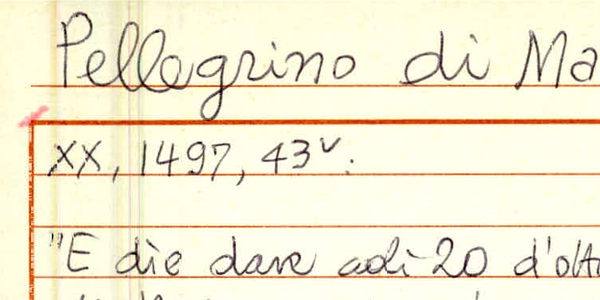 Pellegrino di Ma
XX, 1497, 43v:
"E die dare adi 20 d'ott